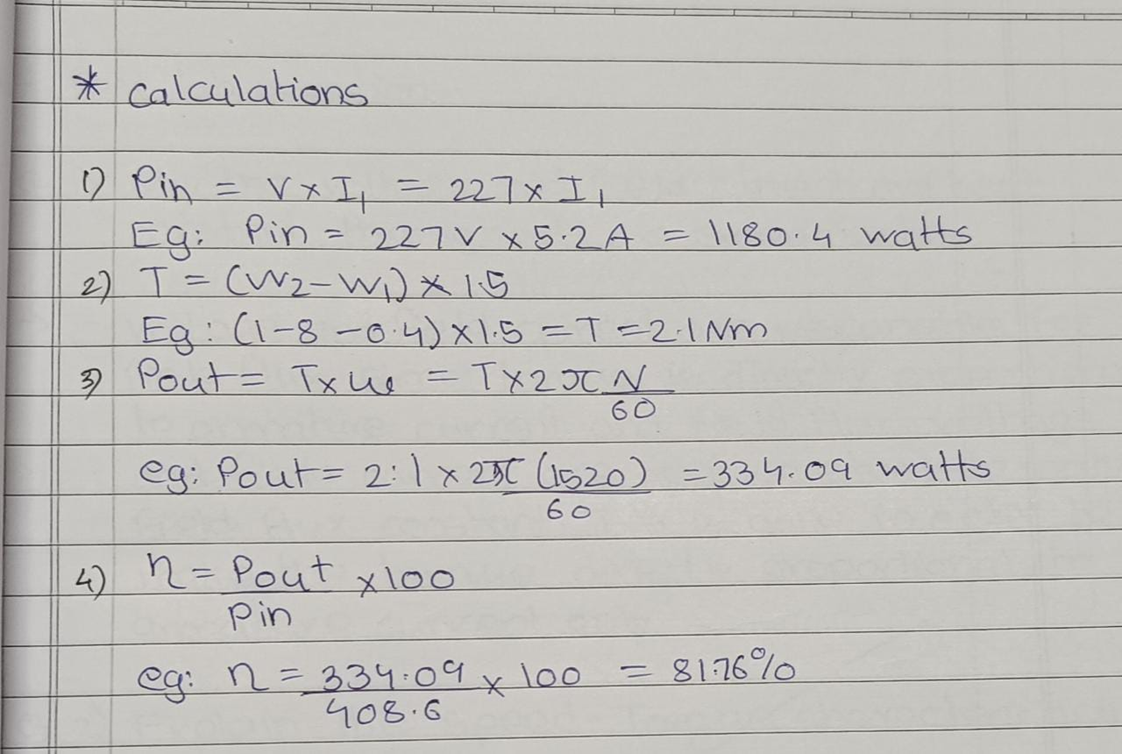 * Calculations
1) Pin = V x I1 = 227 x I1
Eg: Pin = 227V x 5.2A = 1180.4 watts
2) T = (W2-W1) x 1.5
Eg: (1-8 -0.4) x 1.5 = T = 2.1 Nm
3) Pout = T x ω = T x 2π N
60
eg: Pout = 2:1 x 2π (1520) = 334.09 watts
60
4) η = Pout x 100
Pin
eg: η = 334.09 x 100 = 81.76%
408.6